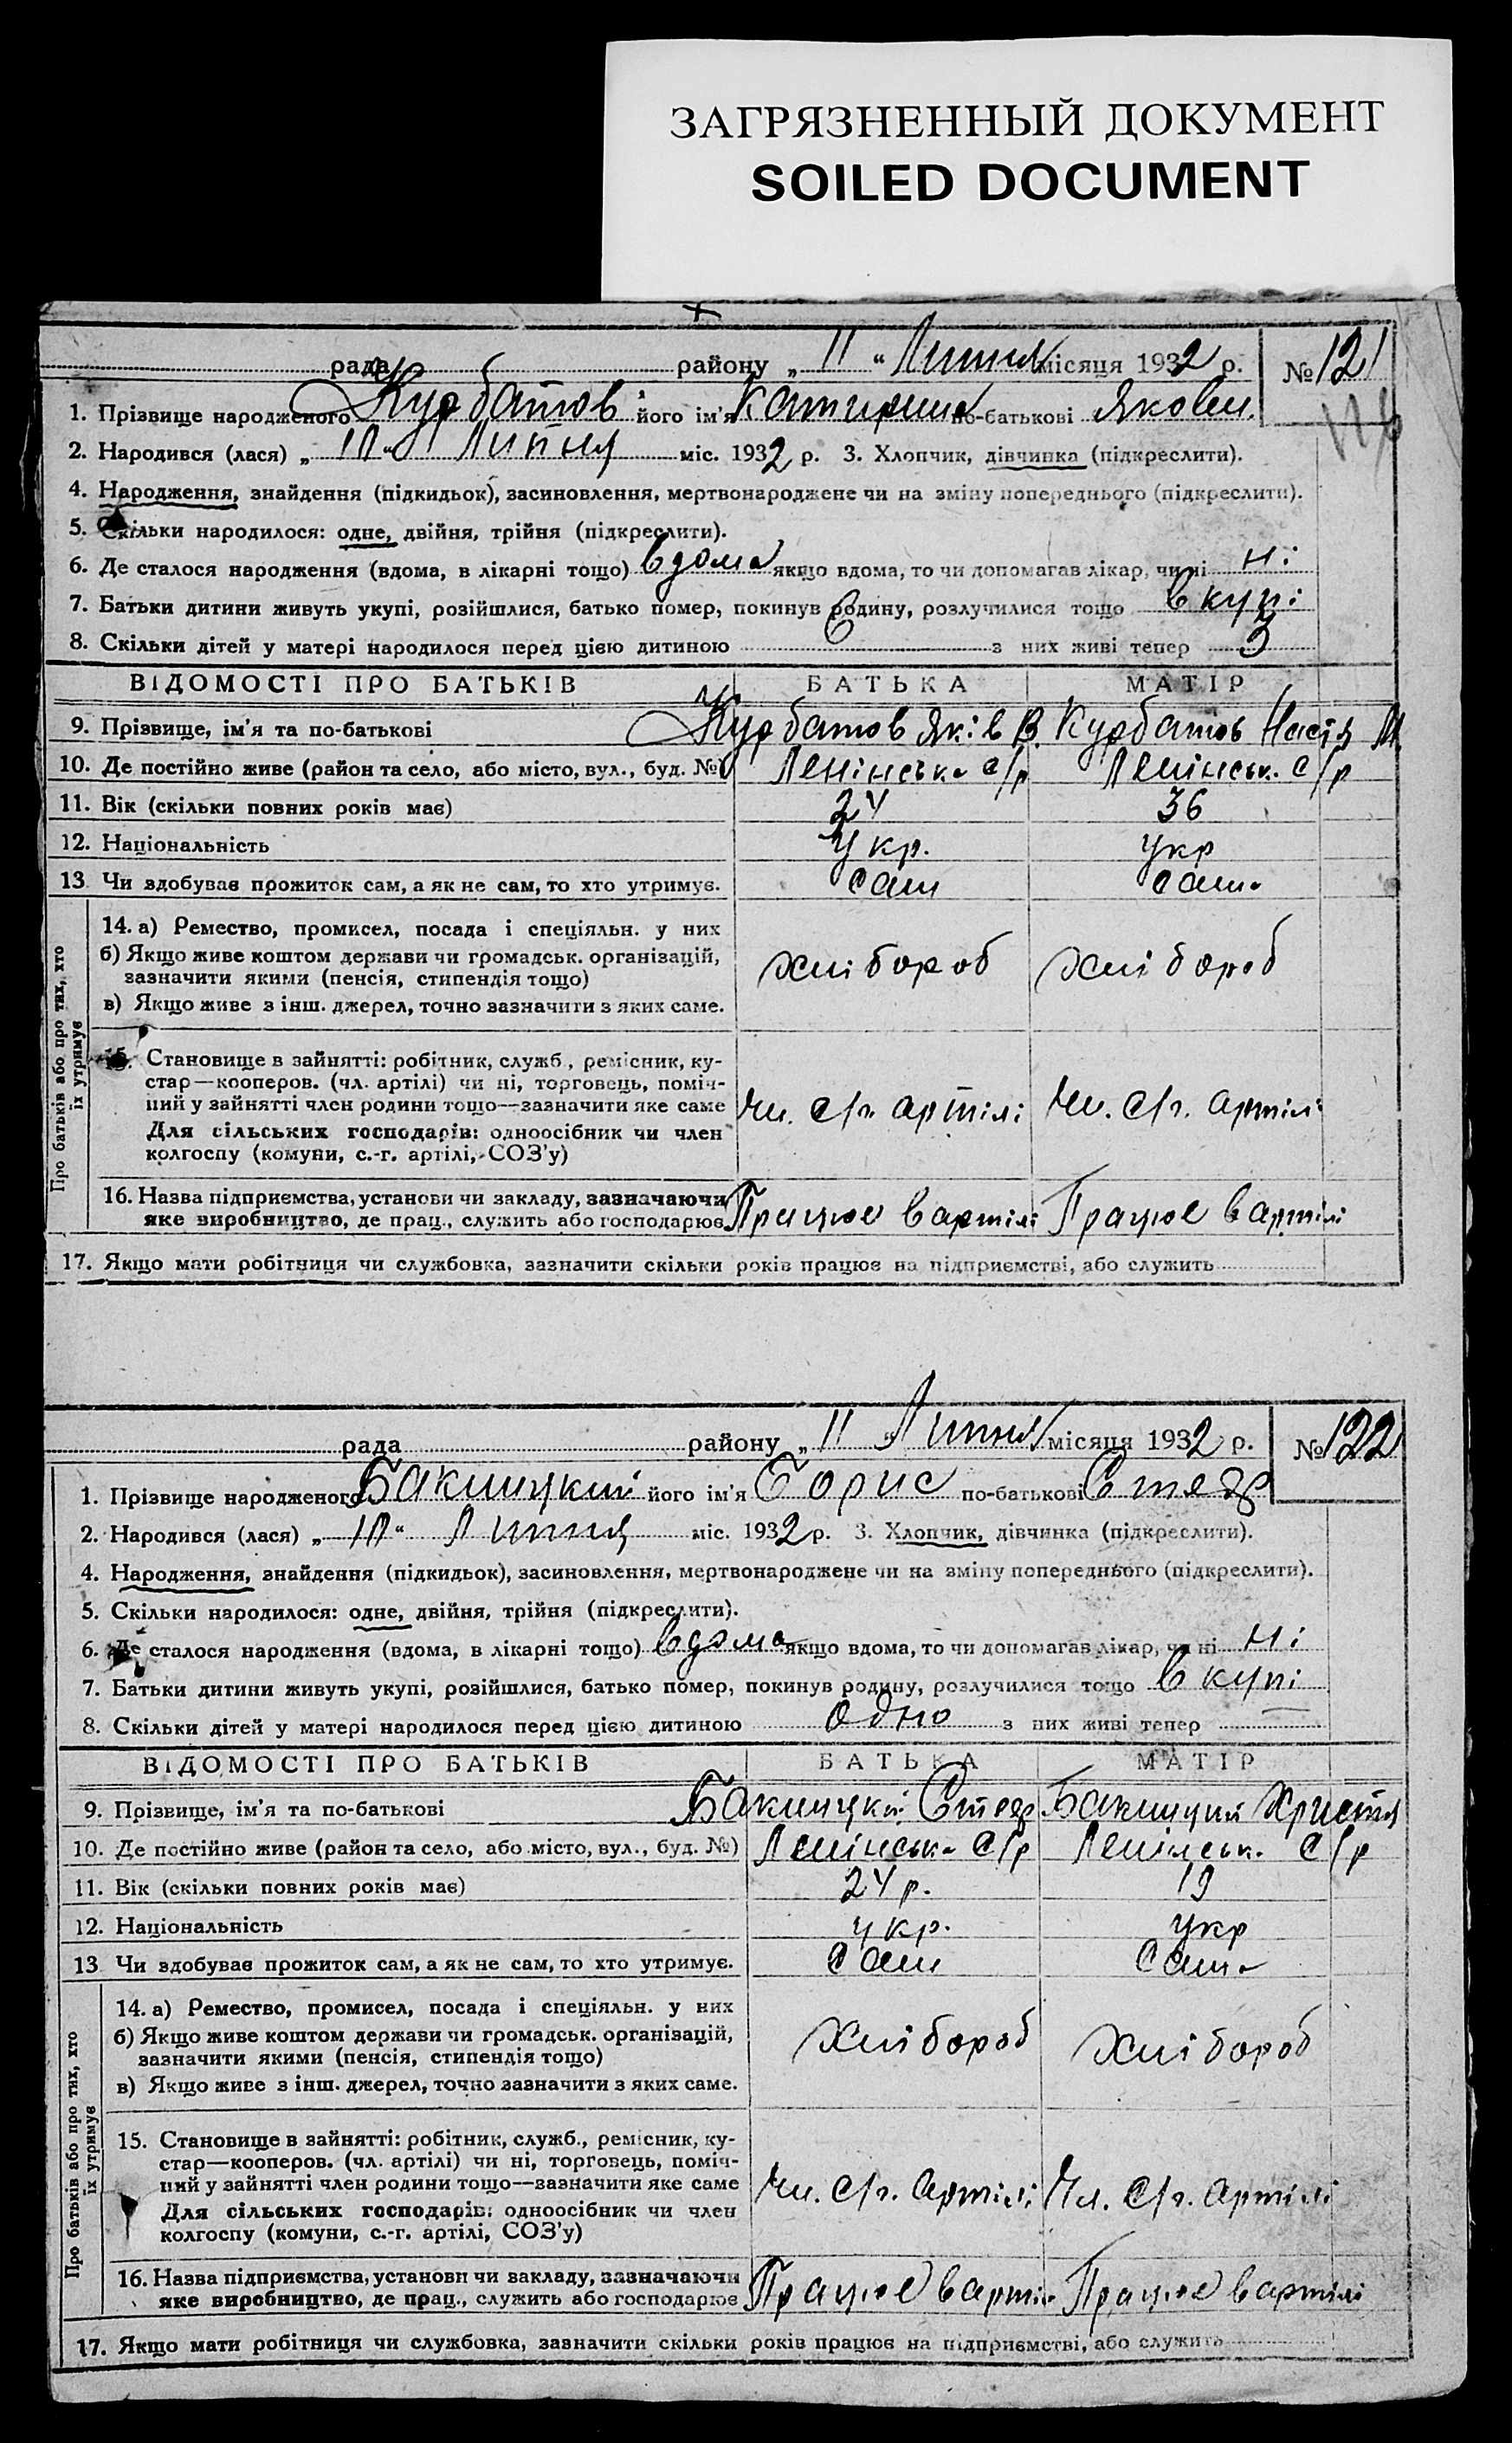 ЗАГРЯЗНЕННЫЙ ДОКУМЕНТ
SOILED DOCUMENT
рада району „ 11 “ Липня місяця 1932 р. № 121
1. Прізвище народженого Курбатов його ім'я Катирина по-батькові Яковл.
2. Народився (лася) „ 10 “ Липня міс. 1932 р. 3. Хлопчик, дівчинка (підкреслити).
4. Народження, знайдення (підкидьок), засиновлення, мертвонароджене чи на зміну попереднього (підкреслити).
5. Скільки народилося: одне, двійня, трійня (підкреслити).
6. Де сталося народження (вдома, в лікарні тощо) вдома якщо вдома, то чи допомагав лікар, чи ні ні
7. Батьки дитини живуть укупі, розійшлися, батько помер, покинув родину, розлучилися тощо вкупі
8. Скільки дітей у матері народилося перед цією дитиною 6 з них живі тепер 3
ВІДОМОСТІ ПРО БАТЬКІВ БАТЬКА МАТІР
9. Прізвище, ім'я та по-батькові Курбатов Яків В. Курбатов Настя М.
10. Де постійно живе (район та село, або місто, вул., буд. №) Ленінська с/р Ленінськ. с/р
11. Вік (скільки повних років має) 24 36
12. Національність Укр. укр
13 Чи здобував прожиток сам, а як не сам, то хто утримує. сам сама
Про батьків або про тих, хто
їх утримує
14. а) Ремество, промисел, посада і спеціяльн. у них
б) Якщо живе коштом держави чи громадськ. організацій,
зазначити якими (пенсія, стипендія тощо) хлібороб хлібороб
в) Якщо живе з інш. джерел, точно зазначити з яких саме.
15. Становище в зайнятті: робітник, служб., ремісник, ку-
стар—кооперов. (чл. артілі) чи ні, торговець, поміч-
ний у зайнятті член родини тощо—зазначити яке саме Чл. с/г. артілі Чл. с/г. артілі
Для сільських господарів: одноосібник чи член
колгоспу (комуни, с.-г. артілі, СОЗ'у)
16. Назва підприємства, установи чи закладу, зазначаючи
яке виробництво, де прац., служить або господарює Працює в артілі Працює в артілі
17. Якщо мати робітниця чи службовка, зазначити скільки років працює на підприємстві, або служить
рада району „ 11 “ Липня місяця 1932 р. № 122
1. Прізвище народженого його ім'я Борис по-батькові
2. Народився (лася) „ 10 “ Липня міс. 1932 р. 3. Хлопчик, дівчинка (підкреслити).
4. Народження, знайдення (підкидьок), засиновлення, мертвонароджене чи на зміну попереднього (підкреслити).
5. Скільки народилося: одне, двійня, трійня (підкреслити).
6. Де сталося народження (вдома, в лікарні тощо) вдома якщо вдома, то чи допомагав лікар, чи ні ні
7. Батьки дитини живуть укупі, розійшлися, батько помер, покинув родину, розлучилися тощо вкупі
8. Скільки дітей у матері народилося перед цією дитиною одно з них живі тепер —
ВІДОМОСТІ ПРО БАТЬКІВ БАТЬКА МАТІР
9. Прізвище, ім'я та по-батькові Христя
10. Де постійно живе (район та село, або місто, вул., буд. №) Ленінська с/р Ленінськ. с/р
11. Вік (скільки повних років має) 24 р. 19
12. Національність укр. укр
13 Чи здобував прожиток сам, а як не сам, то хто утримує. сам сама
Про батьків або про тих, хто
їх утримує
14. а) Ремество, промисел, посада і спеціяльн. у них
б) Якщо живе коштом держави чи громадськ. організацій,
зазначити якими (пенсія, стипендія тощо) хлібороб хлібороб
в) Якщо живе з інш. джерел, точно зазначити з яких саме.
15. Становище в зайнятті: робітник, служб., ремісник, ку-
стар—кооперов. (чл. артілі) чи ні, торговець, поміч-
ний у зайнятті член родини тощо—зазначити яке саме Чл. с/г. артілі Чл. с/г. артілі
Для сільських господарів: одноосібник чи член
колгоспу (комуни, с.-г. артілі, СОЗ'у)
16. Назва підприємства, установи чи закладу, зазначаючи
яке виробництво, де прац., служить або господарює Працює в артілі Працює в артілі
17. Якщо мати робітниця чи службовка, зазначити скільки років працює на підприємстві, або служить